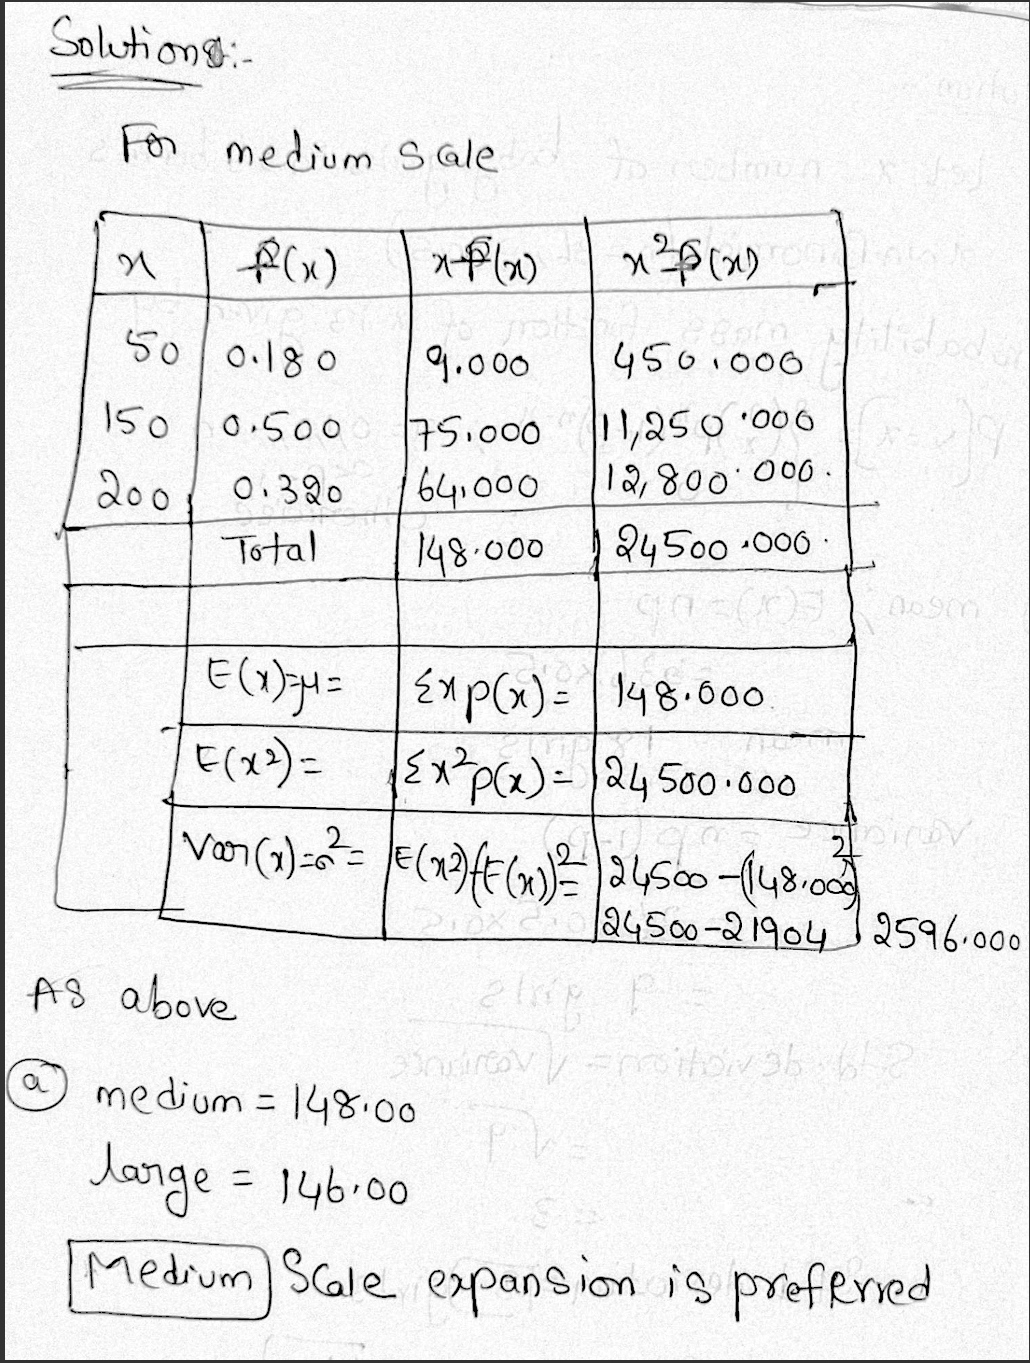 Solutions:-
For medium scale
x P(x) xP(x) x²P(x)
50 0.180 9.000 450.000
150 0.500 75.000 11,250.000
200 0.320 64.000 12,800.000.
Total 148.000 24500.000.
E(x)=μ= Σxp(x)= 148.000.
E(x²)= Σx²p(x)= 24500.000
Var(x)=σ²= E(x²)-(E(x))²= 24500-(148.000)²
24500-21904 2596.000
As above
(a) medium = 148.00
large = 146.00
Medium Scale expansion is preferred